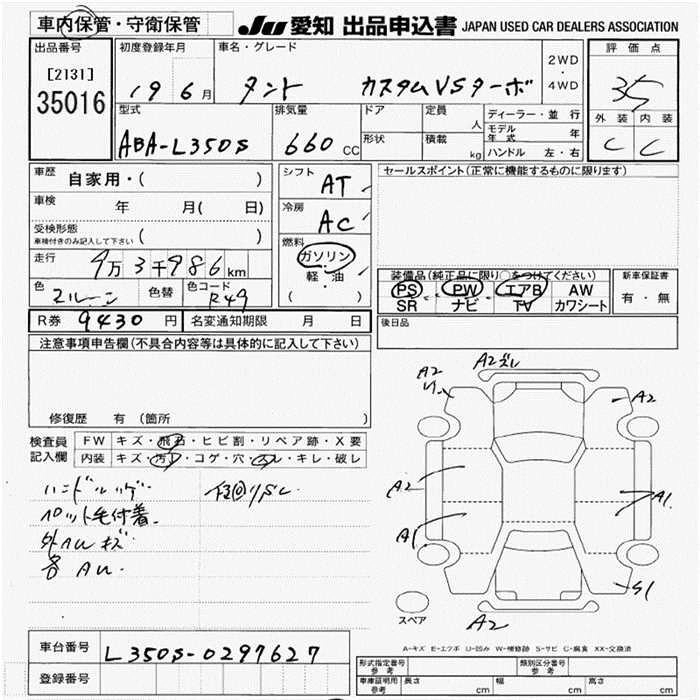 車内保管・守衛保管
JU 愛知 出品申込書 JAPAN USED CAR DEALERS ASSOCIATION
出品番号
[2131]
35016
初度登録年月
19 6月
車名・グレード
タント カスタムVSターボ
2WD
・
4WD
評価点
3.5
外装 内装
C C
型式
ABA-L350S
排気量
660 CC
ドア
形状
定員
人
積載
kg
ディーラー・並行
モデル年式 年
ハンドル 左・右
車歴
自家用・( )
車検
年 月( 日)
受検形態
車検付きのみ記入して下さい ( )
走行
9万3千986km
色
マルーン
色替
色コード
R49
シフト
AT
冷房
AC
燃料
ガソリン
・
軽・油
( )
セールスポイント(正常に機能するものに限ります)
装備品(純正品に限り〇をつけてください)
PS PW エアB AW
SR ナビ TV カワシート
新車保証書
有・無
後日品
R券 9430 円
名変通知期限 月 日
注意事項申告欄(不具合内容等は具体的に記入して下さい)
修復歴 有(箇所 )
検査員
記入欄
FW キズ・飛石・ヒビ割・リペア跡・X要
内装 キズ・汚レ・コゲ・穴・スレ・キレ・破レ
ペット毛付着
外AUキズ
各AU
A2ズレ
A2
A2
A2
A1
A1
S1
A2
スペア
A-キズ E-エクボ U-凹み W-補修跡 S-サビ C-腐食 XX-交換済
車台番号
L350S-0297627
登録番号
形式指定番号
参考
類別区分番号
参考
車庫証明用
参考
長さ cm 幅 cm 高さ cm